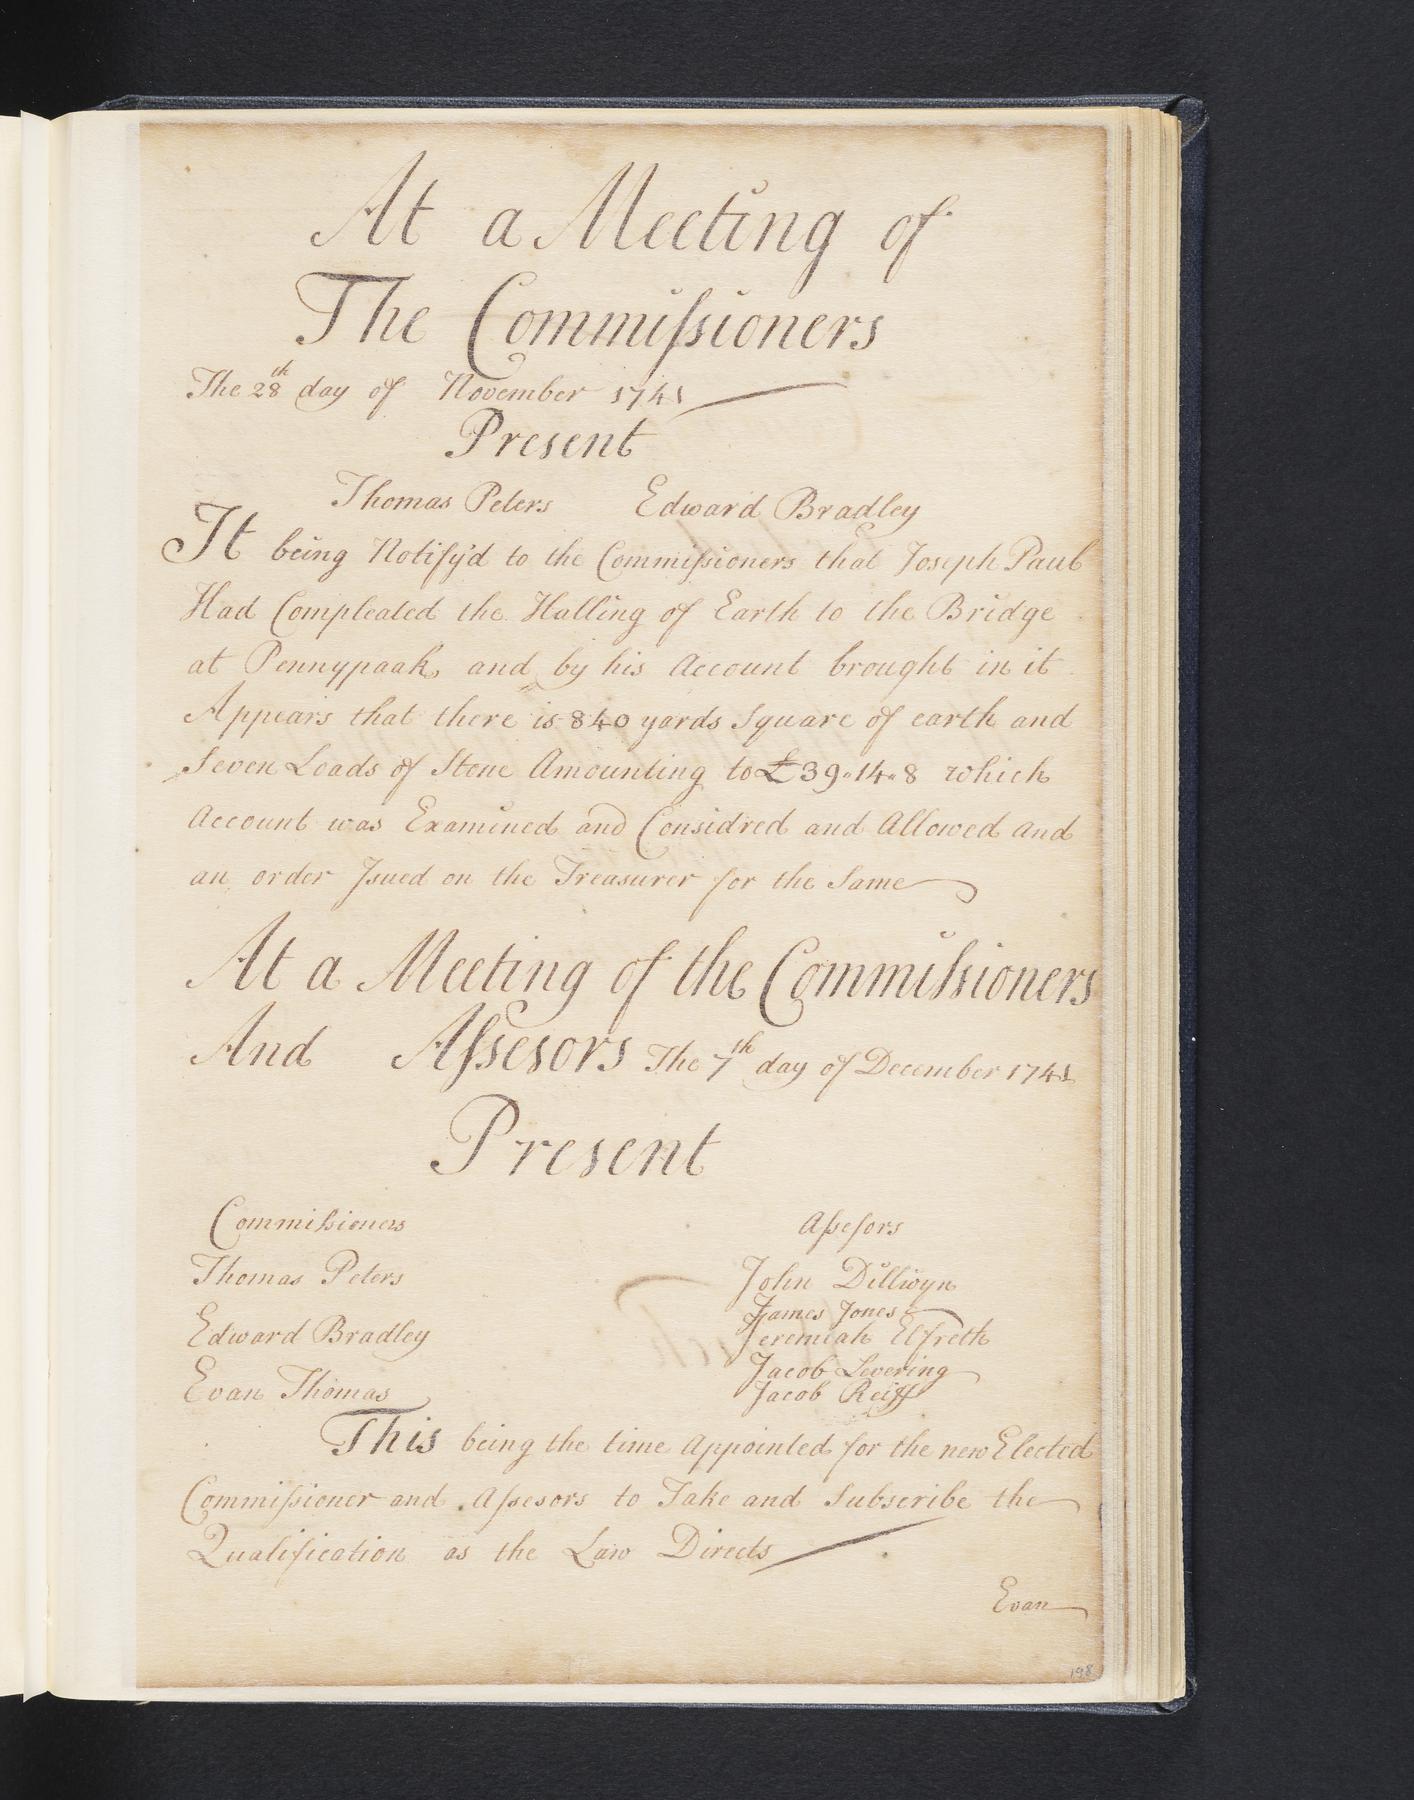 At a Meeting of
The Commissioners
The 28th day of November 1741
Present
Thomas Peters Edward Bradley
It being Notify'd to the Commissioners that Joseph Paul
Had Compleated the Halling of Earth to the Bridge
at Pennypaak, and by his Account brought in it
Appears that there is 840 yards Square of earth and
Seven Loads of Stone Amounting to £39"14"8 which
Account was Examined and Considred and Allowed and
an order Jsued on the Treasurer for the Same
At a Meeting of the Commissioners
And Assesors The 7th day of December 1741
Present
Commissioners Assesors
Thomas Peters John Dillwyn
James Jones
Edward Bradley Jeremiah Elfreth
Jacob Levering
Evan Thomas Jacob Reiff
This being the time Appointed for the new Elected
Commissioner and Assesors to Take and Subscribe the
Qualification as the Law Directs
Evan
198